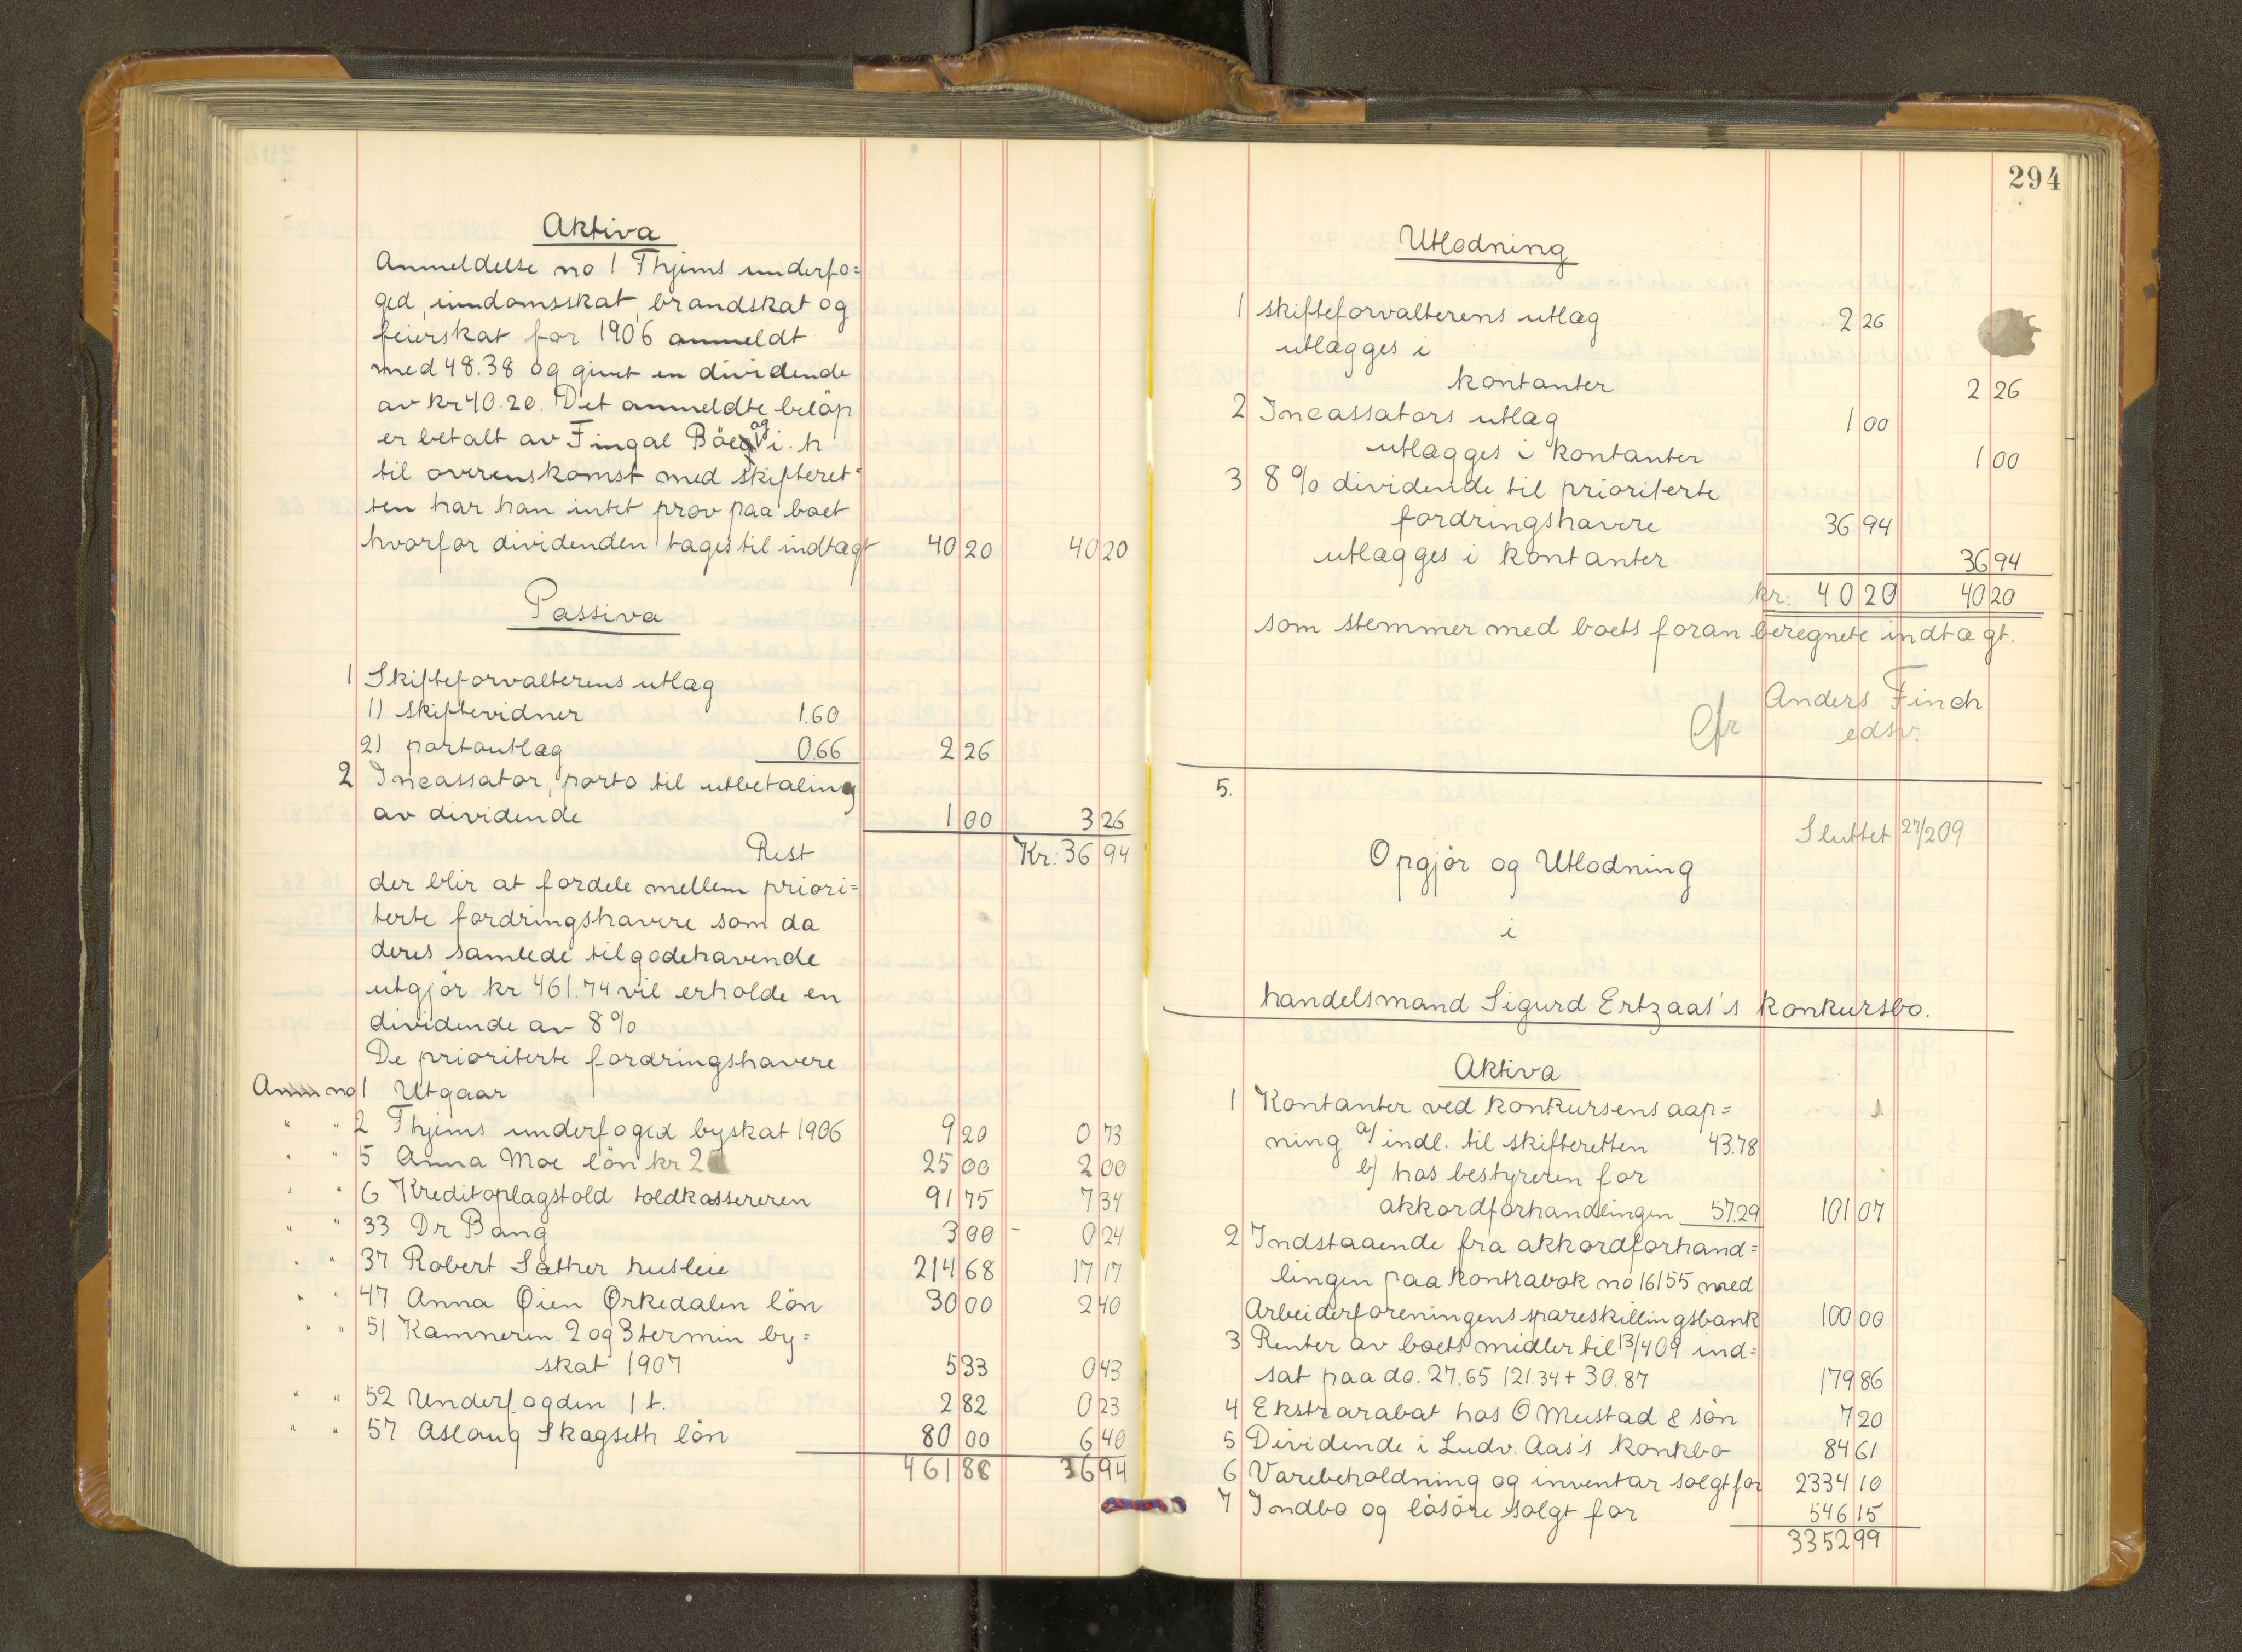 Aktiva
Anmeldelse no 1 Thjems underfo=
ged, iindomsskat, brandskat og
feierskat for 1906 anmeldt
med 48.38 og givet en dividende
av kr 40.20. Det anmeldte beløp
er betalt av Fingal Böe og i. h
til overenskomst med skifteret=
ten har han intet prov paa boet
hvorfor dividenden tages til indtægt 40 20 40 20
Passiva
1 Skifteforvalterens utlæg
1) skiftevidner 1.60
2) portoutlæg 0.66 2 26
2 Incassator, porto til utbetaling
av dividende 1 00 3 26
Rest Kr: 36 94
der blir at fordele mellem priori=
terte fordringshavere som da
deres samlede tilgodehavende
utgjör kr 461.74 vil erholde en
dividende av 8%
De prioriterte fordringshavere
Anm no 1 Utgaar
" " 2 Thjems underfoged byskat 1906 9 20 0 73
" " 5 Anna Moe lön kr 2 25 00 2 00
" " 6 Kreditoplagstold toldkassereren 91 75 7 34
" " 33 Dr Bang 3 00 - 0 24
" " 37 Robert Sather husleie 214 68 17 17
" " 47 Anna Øien Ørkedalen lön 30 00 2 40
" " 51 Kamneren 2 og 3 termin by=
skat 1907 5 33 0 43
" " 52 Underfogden 1 t. 2 82 0 23
" " 57 Aslaug Skagseth lön 80 00 6 40
461 88 36 94
294
Utlodning
1 skifteforvalterens utlæg 2 26
utlægges i
kontanter 2 26
2 Incassators utlæg 1 00
utlægges i kontanter 1 00
3 8% dividende til prioriterte
fordringshavere 36 94
utlægges i kontanter 36 94
kr: 40 20 40 20
som stemmer med boets foran beregnete indtægt.
Anders Finch
edsv.
5.
Sluttet 27/2 09
Opgjör og Utlodning
i
handelsmand Sigurd Ertzaas's konkursbo.
Aktiva
1 Kontanter ved konkursens aap=
ning a/ indl. til skifteretten 43.78
b/ hos bestyreren for
akkordforhandlingen 57.29 101 07
2 Indstaaende fra akkordforhand=
lingen paa kontrabok no 16155 med
Arbeiderforeningens spareskillingsbank 100 00
3 Renter av boets midler til 13/4 09 ind=
sat paa do. 27.65 121.34 + 30.87 179 86
4 Ekstrarabat hos O Mustad & sön 7 20
5 Dividende i Ludv. Aas's konkbo 84 61
6 Varebeholdning og inventar solgt for 2334 10
7 Indbo og lösöre solgt for 546 15
3352 99